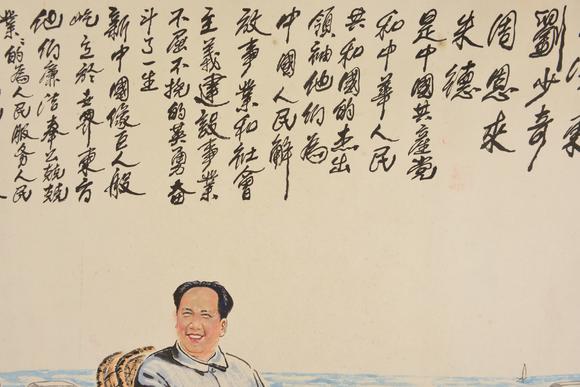 劉少奇
周恩来
朱德
是中國共產党
和中華人民
共和國的杰出
領袖他们為
中國人民解
放事業和社會
主義建設事業
不屈不挠的英勇奮
斗了一生
新中國像巨人般
屹立於世界東方
他们廉洁奉公兢兢
業〻的為人民服务人民